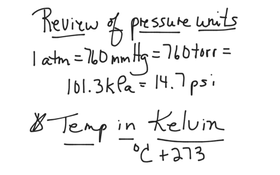 Review of pressure units
1 atm = 760 mmHg = 760 torr =
101.3 kPa = 14.7 psi
* Temp in Kelvin
°C + 273